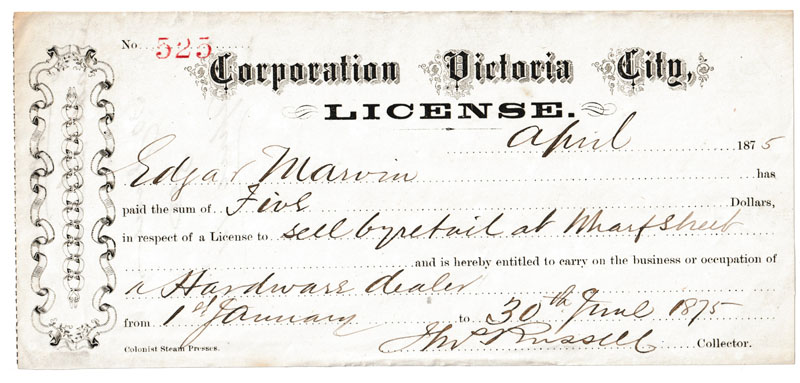 No. 525
Corporation Victoria City,
LICENSE.
April 1875
Edgar Marvin has
paid the sum of Five Dollars,
in respect of a License to sell by retail at Wharf Street
and is hereby entitled to carry on the business or occupation of
a Hardware dealer
from 1st January to 30th June 1875
Jno Russell Collector.
Colonist Steam Presses.